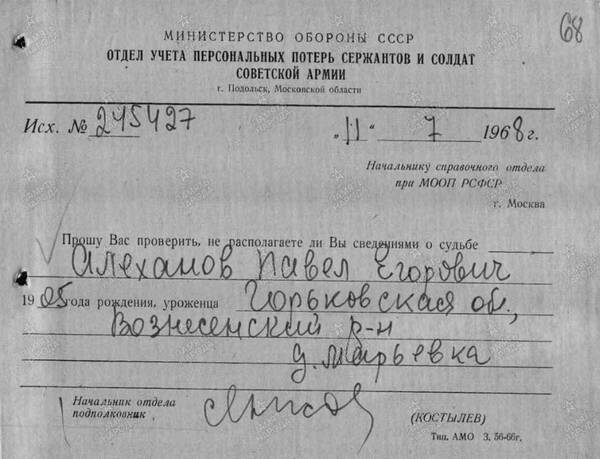 68
МИНИСТЕРСТВО ОБОРОНЫ СССР
ОТДЕЛ УЧЕТА ПЕРСОНАЛЬНЫХ ПОТЕРЬ СЕРЖАНТОВ И СОЛДАТ
СОВЕТСКОЙ АРМИИ
г. Подольск, Московской области
Исх. № 245427 „11“ 7 1968 г.
Начальнику справочного отдела
при МООП РСФСР
г. Москва
Прошу Вас проверить, не располагаете ли Вы сведениями о судьбе
Алеханов Павел Егорович
1905 года рождения, уроженца Горьковская об.,
Вознесенский р-н
д. Марьевка
Начальник отдела
подполковник
(КОСТЫЛЕВ)
Тип. АМО З. 56-66г.